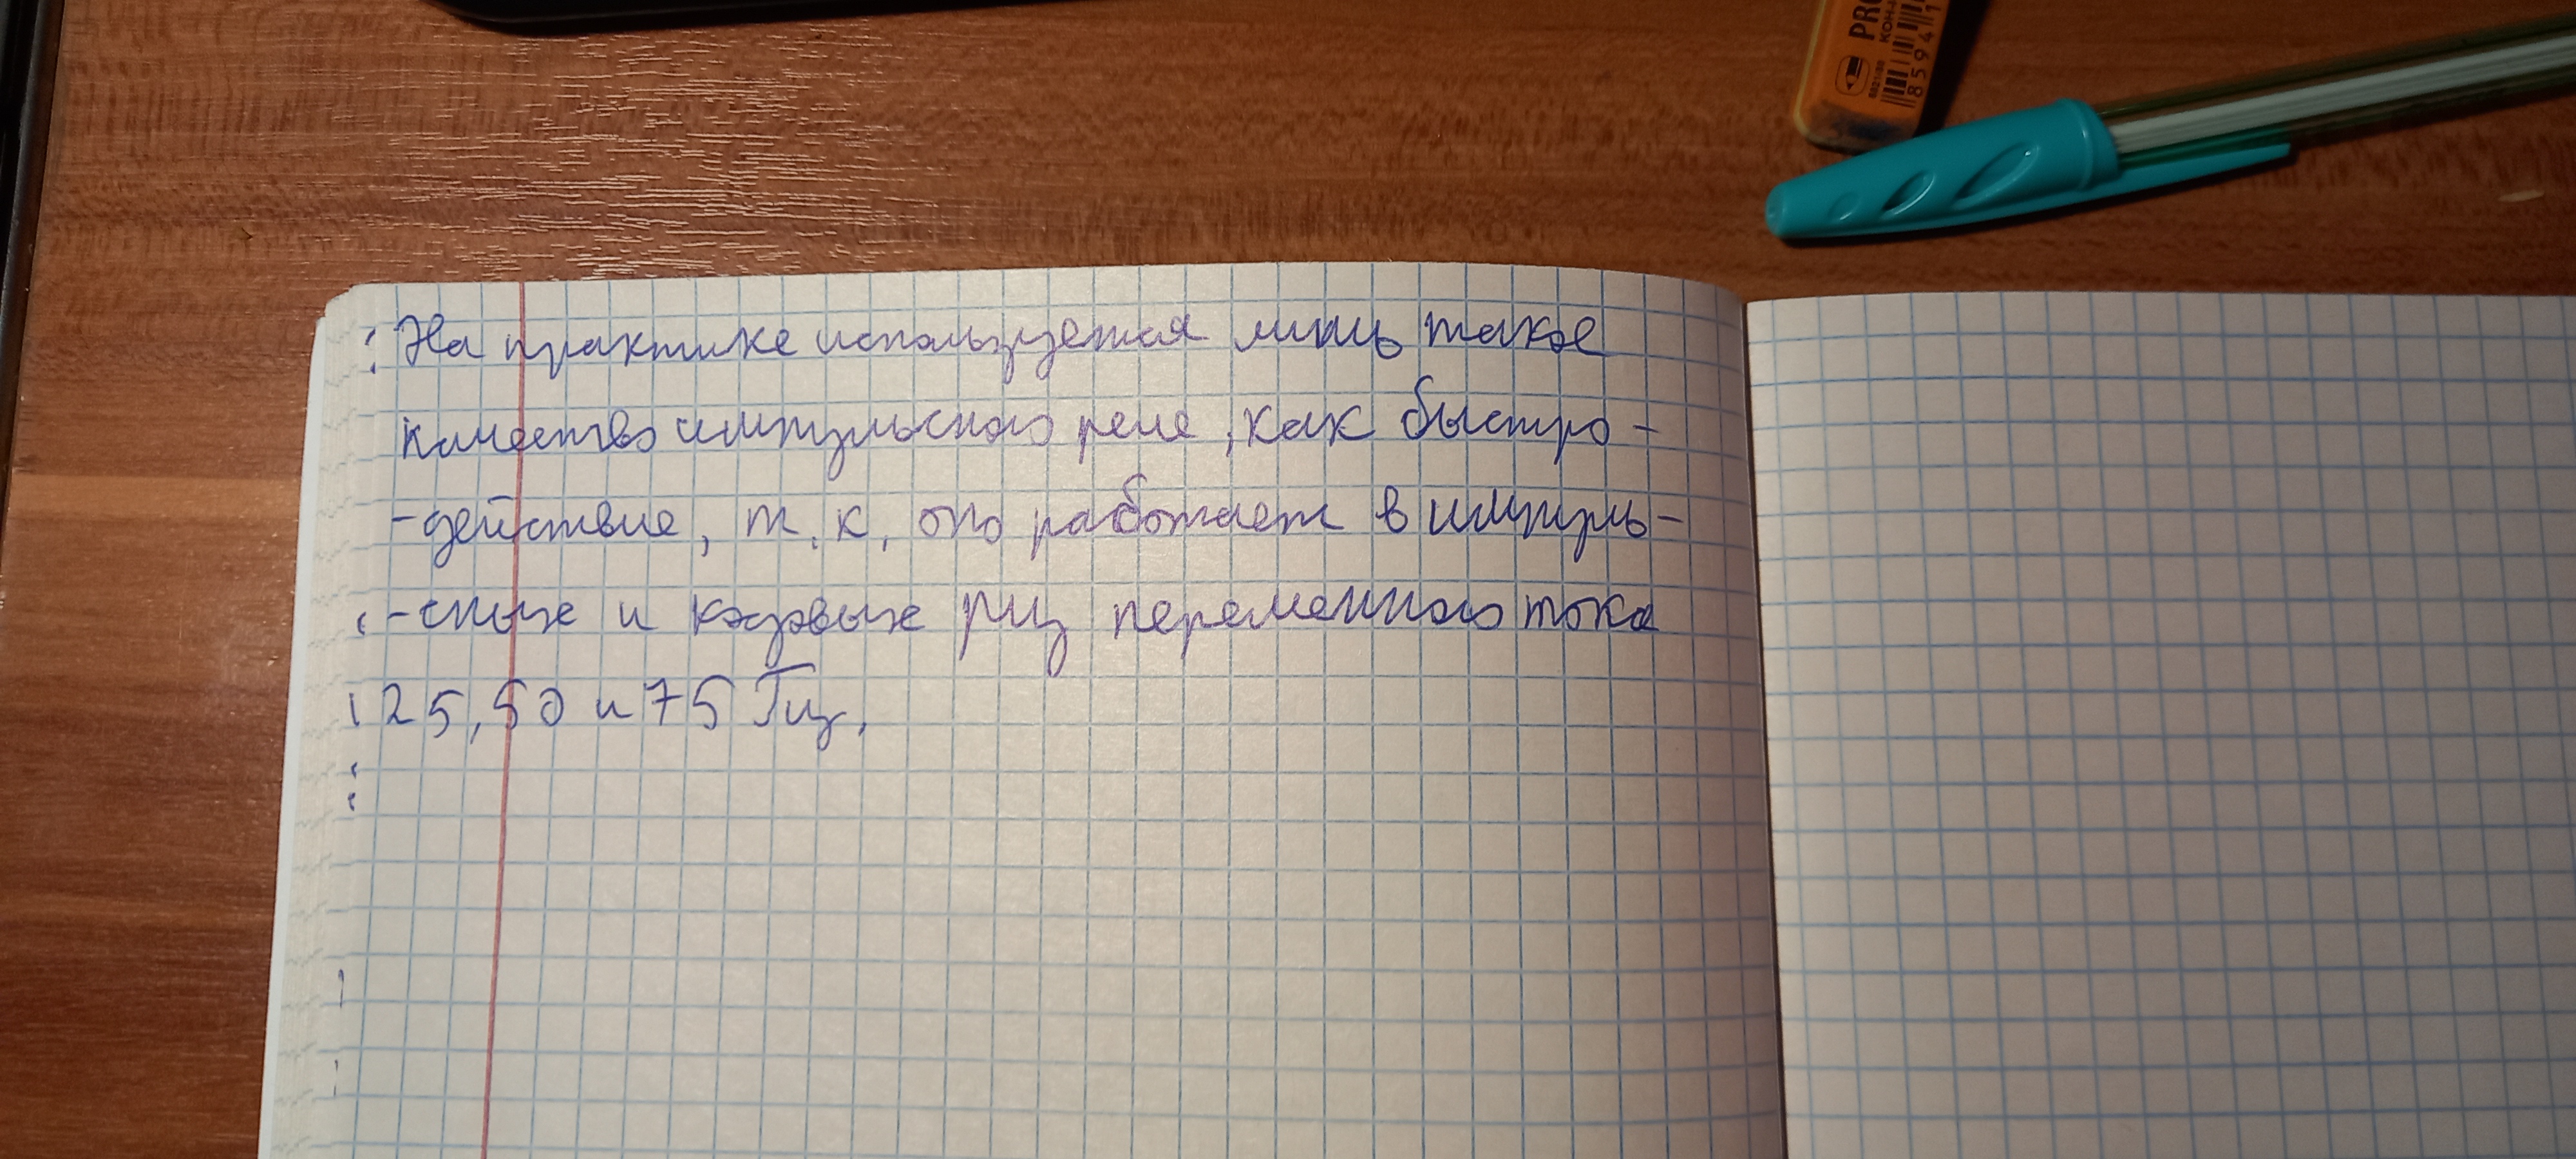 PRO
KOH-I
85941
На практике используется лишь такое
качество импульсного реле, как быстро-
-действие, т.к. оно работает в импуль-
-сных и кодовых рц переменного тока
25, 50 и 75 Гц.